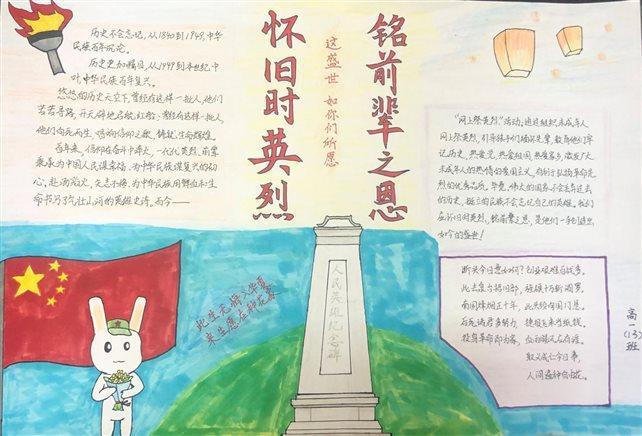 怀旧时英烈
这盛世 如你们所愿
铭前辈之恩
历史不会忘记,从1840到1949,中华
民族百年沉沦。
历史更加瞩目,从1949到本世纪中
叶中华民族百年复兴。
悠悠的历史天空下,曾经有这样一批人,他们
苦苦寻路,开天辟地启航红船;曾经有这样一批人,
他们向死而生,唱响信仰之歌,铸就生命辉煌。
百年来,信仰在奋斗中淬火,一代代英烈、前辈
秉承为中国人民谋幸福,为中华民族谋复兴的初
心,赴汤蹈火、矢志不移,为中华民族用鲜血和生
命书写了气壮山河的英雄史诗。而今——
“网上祭英烈”活动,通过组织未成年人
网上祭英烈,引导孩子们缅怀先辈,教育他们牢
记历史、热爱党、热爱祖国、热爱家乡,激发广大
未成年人的热情的爱国主义,有利于弘扬革命先
烈的优秀品质。毕竟,伟大的国家不会丢弃过去
的历史,挺立的民族不会忘记自己的英雄。我们
在怀旧时英烈、铭前辈之恩,是他们一手创造出
如今的盛世!
此生无悔入华夏
来生愿在种花家
人民英雄纪念碑
断头今日意如何?创业艰难百战多。
此去泉台招旧部,旌旗十万斩阎罗。
南国烽烟正十年,此头须向国门悬。
后死诸君多努力,捷报飞来当纸钱。
投身革命即为家,血雨腥风应有涯。
取义成仁今日事,
人间遍种自由花。
高一(13)班